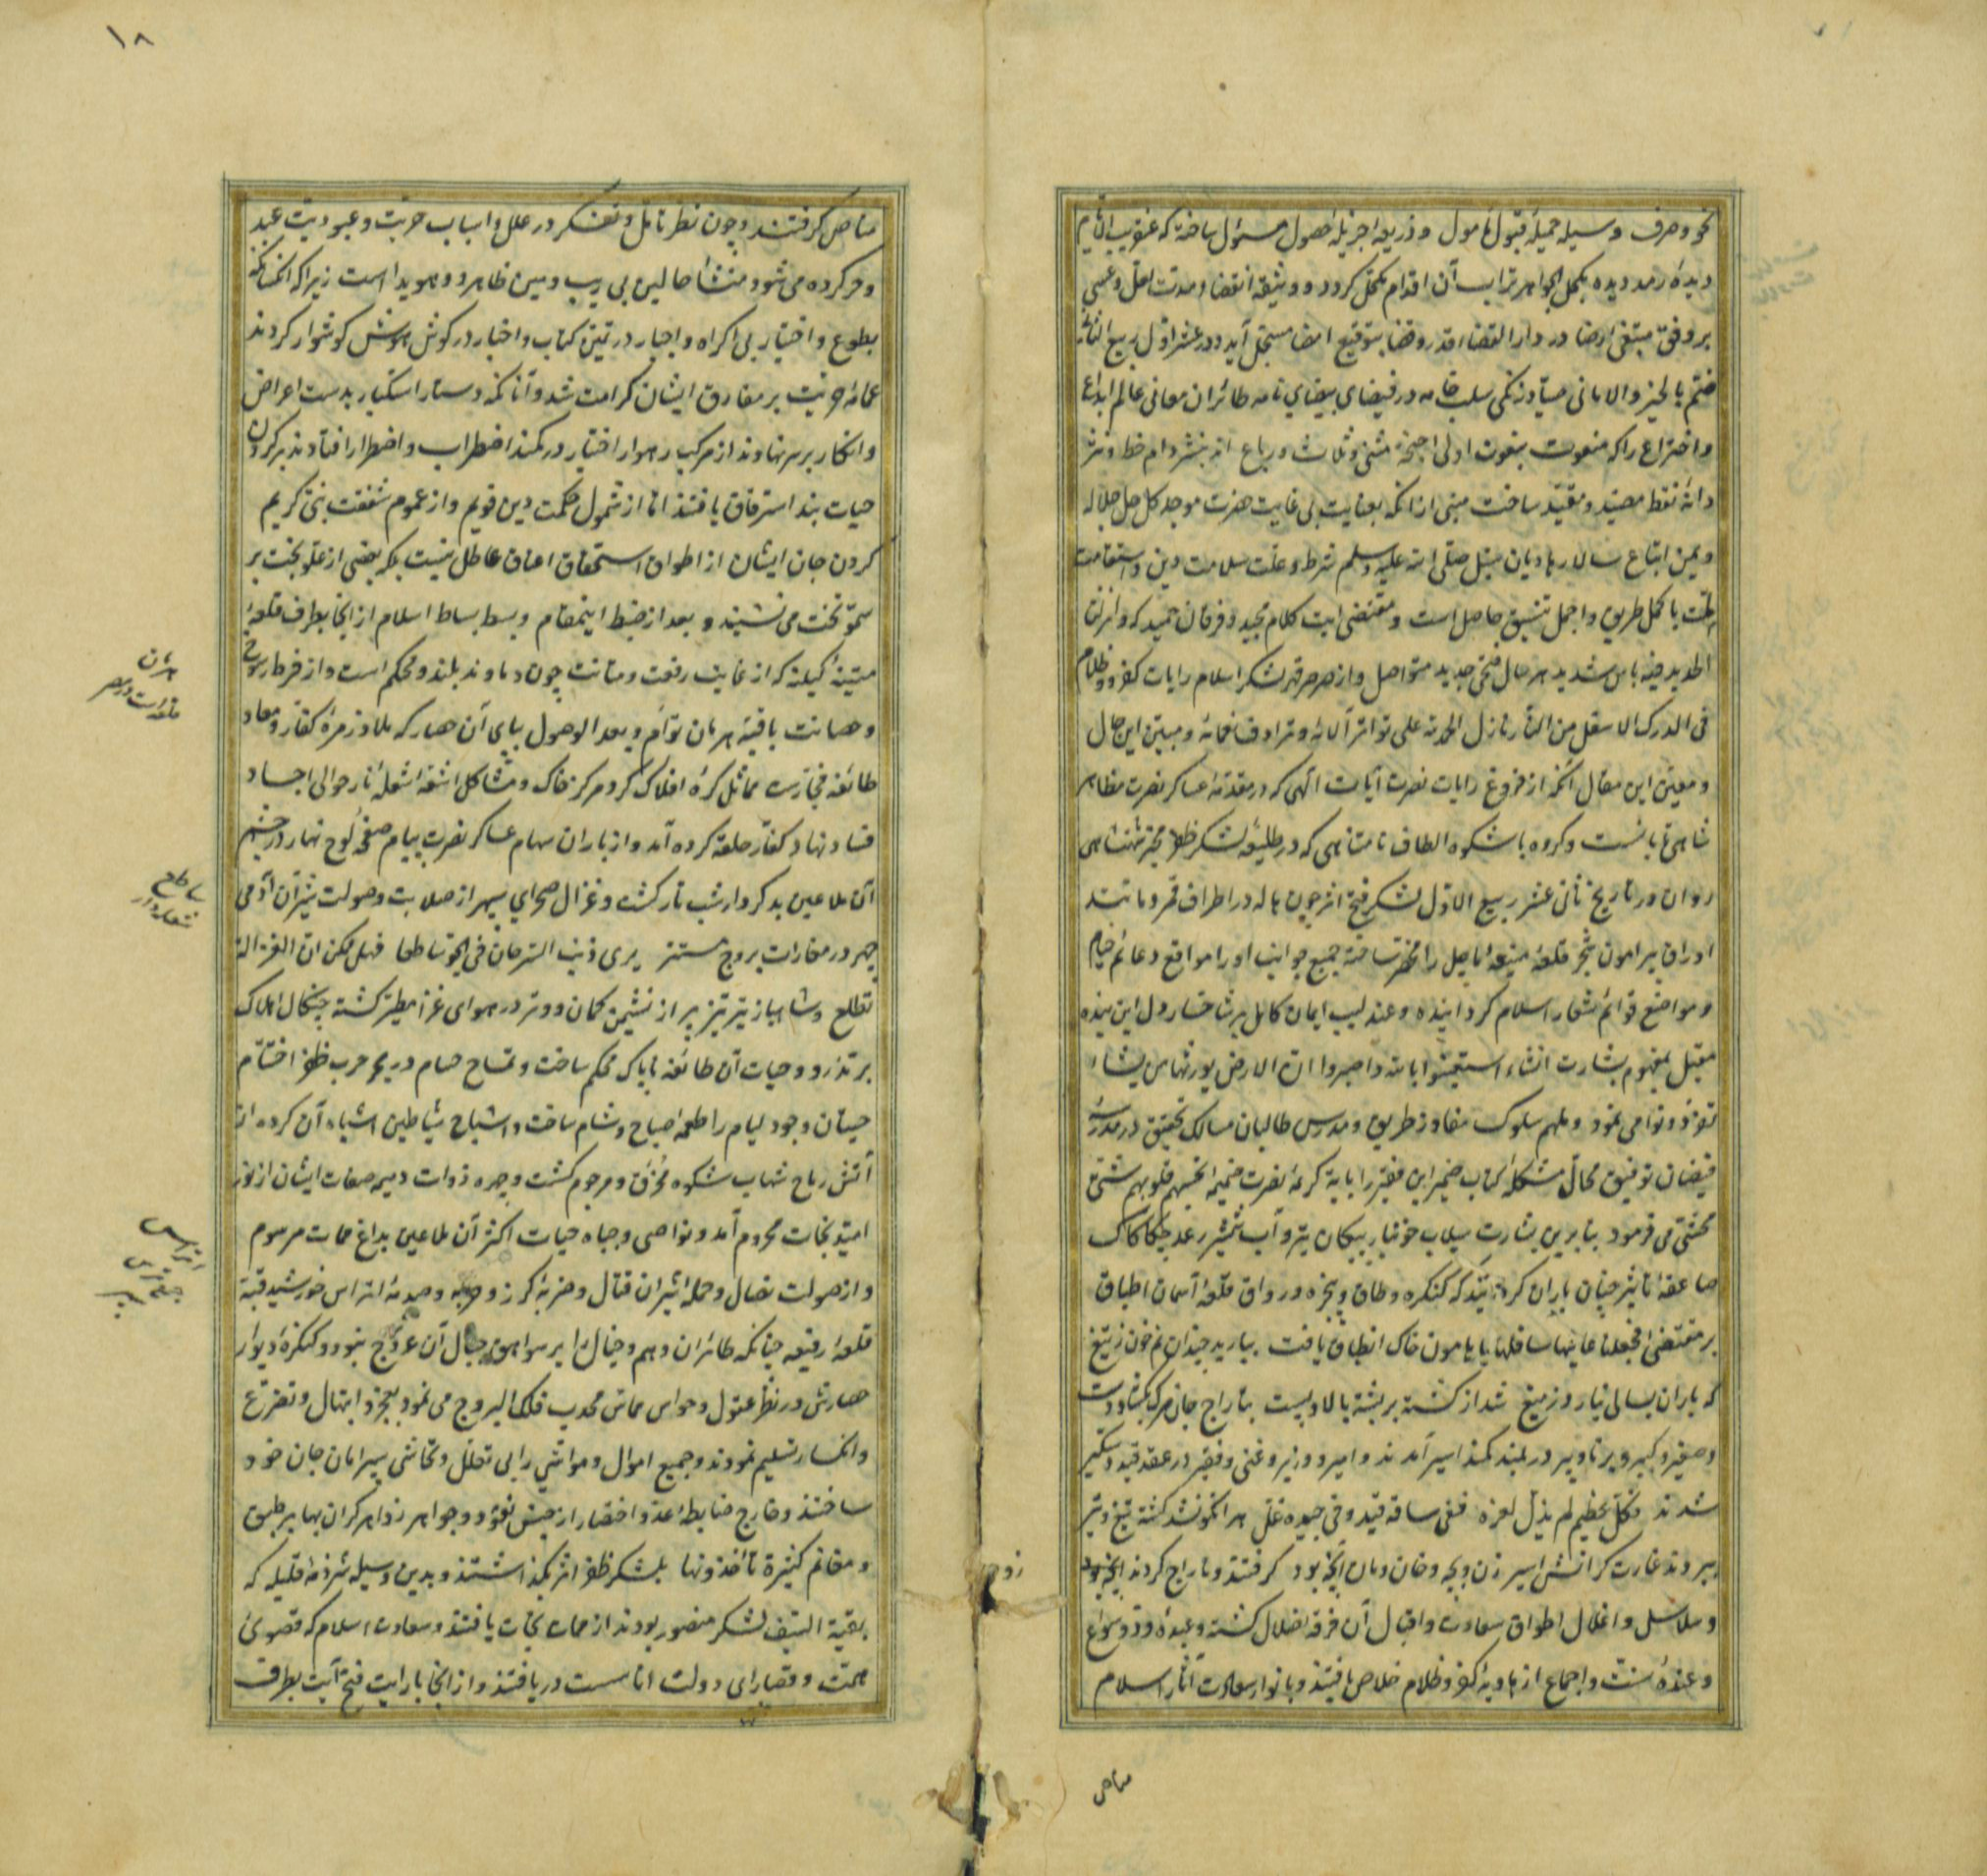 نحو و صرف وسیله جمیلهٔ قبول مأمول و ذریعه جزیلهٔ حصول مسئول ساخته که عنقریب الایام
دیدهٔ رمد دیده بکحل الجواهر تراب آن اقدام مکتحل گردد و وثیقه انقضاء مدت لعل و عسی
بر وفق مبتغی و رضا در دار القضاء قدر و قضا بتوقیع امضا مسجل آید و در عشر اول ربیع الثانی
ختم بالخیر و الامانی صیاد زنگی سلب خامه در فیضای بیضای نامه طائران معانی عالم ابداع
و اختراع را که منعوت بنعوت اولی اجنحة مثنی و ثلاث و رباع اند بنشر دام خط و نثر
دانهٔ نقط مصید و مقید ساخت مبنی از آنکه بعنایت بی غایت حضرت موجد کل جل جلاله
و یمن اتباع سالار هادیان سبل صلی الله علیه و سلم شرط و علت سلامت دین و استقامت
ملت باکمل طریق و اجمل تنسیق حاصل است و مقتضی آیت کلام مجید و فرقان حمید که و انزلنا
الحدید فیه باس شدید هر حال فتحی جدید متواصل و از صرصر قهر لشکر اسلام رایات کفر و ظلام
فی الدرک الاسفل من النار نازل الحمد لله علی تواتر آلائه و ترادف نعمائه و مبین این حال
و معین این مقال آنکه از فروغ رایات نصرت آیات الهی که در مقدمهٔ عساکر نصرت مظاهر
شاهی تابانست و کروه باشکوه الطاف نامتناهی که در طلیعهٔ لشکر ظفر مخبر شهنشاهی
روان در تاریخ ثانی عشر ربیع الاول لشکر فتح اثر چون هاله در اطراف قمر و مانند
اوراق پیرامون شجر قلعهٔ منیعهٔ ماچل را منحصر ساخته جمیع جوانب او را مواقع دعائم خیام
و مواضع قوائم شعار اسلام گردانیده و عندلیب ایمان کامل بر شاخسار دل این بنده
مقبل بمفهوم بشارت انشاء استعینوا بالله و اصبروا ان الارض لله یورثها من یشاء
تغرد و توامی نمود و ملهم سلوک مفاوز طریق و مدرس طالبان مسالک تحقیق در مدرسهٔ
فیضان توفیق محال مشکلهٔ کتاب ضمیر این فقیر را بآیهٔ کریمهٔ نصرت ضمیمه تحسبهم و قلوبهم شتی
محشی می فرمود بنا برین بشارت سیلاب خونبار پیکان تیر و آب شمشیر رعد چکاکاک
صاعقه تاثیر چنان باران کردانید که کنگره و طاق و پنجره و رواق قلعهٔ آسمان اطباق
بر مقتضی فجعلنا عالیها سافلها با هامون خاک انطباق یافت ببارید چندان نم خون ز تیغ
که باران بسالی نبارد ز میغ شد از کشته بر پشته بالا و پست بتاراج جان مرک بکشاد دست
و صغیر و کبیر و برنا و پیر در بند کمند اسیر آمدند و امیر و وزیر و غنی و فقیر در عقد قید دستگیر
شدند فکل عظیم لم یذل لعزه ففی ساقه قید و فی جیده غل هر انکو نشد کشته تیغ و تیر
ببردند غارت کرانش اسیر زن و بچه و خان و مان آنچه بود گرفتند و تاراج کردند زود
و سلاسل و اغلال اطواق سعادت و اقبال آن فرقه اضلال کشته و عبدهٔ ود و سواع
و عندهٔ سنت و اجماع از هاویهٔ کفر و ظلام خلاص یافتند و بانوار سعادت آثار اسلام
مناص
زوجه
۱۸
مناص گرفتند و چون نظر تأمل و تفکر در علل و اسباب حریت و عبودیت عبد
و حر کرده می شود منشأ حالین بی ریب و مین ظاهر و هویدا است زیرا که آنکسانکه
بطوع و اختیار بی اکراه و اجبار در ثمین کتاب و اخبار در گوش هوش گوشوار کردند
عمامهٔ حریت بر مفارق ایشان کرامت شد و آنانکه دستار استکبار بدست اعراض
و انکار بر سر نهادند از مرکب رهوار اختیار در کمند اضطراب و اضطرار افتادند بر گردن
حیات بند استرقاق یافتند اما از شمول حکمت دین قویم و از عموم شفقت نبی کریم
گردن جان ایشان از اطواق استحقاق اعتاق عاطل نیست بلکه بعضی از علو بخت بر
سمو تخت می نشینند و بعد از ضبط اینمقام و بسط بساط اسلام از آنجا بطرف قلعهٔ
متینهٔ کیلنه که از غایت رفعت و متانت چون دماوند بلند و محکم است و از فرط رسوخ
و حصانت باقبهٔ هرمان توأم و بعد الوصول بپای آن حصار که ملاذ زمرهٔ کفار و معاد
طائفه فجارست مماثل کرهٔ افلاک گرد مرکز خاک و مشاکل اشعه شعلهٔ نار حوالی اجساد
فساد نهاد کفار حلقه کرده آمد و از باران سهام عساکر نصرت پیام صفحهٔ لوح نهار در چشم
آن ملاعین بدکردار شب تار کشت و غزال صحرای سپهر از صلابت و صولت شیران آدمی
چهر در مغارات بروج مستتر یری ذنب السرحان فی الجو ساطعا فهل ممکن ان الغزاله
تطلع و شاهباز تیز پر تیر از نشیمن کمان و وتر در هوای غزا مطیر کشته چنگال اهلاک
بر تذرو و حیات آن طائفهٔ ناپاک محکم ساخت و تمساح حسام در بحر حرب ظفر اختتام
حیتان وجود لیام را طعمهٔ صباح و شام ساخت و اشباح شیاطین اشباه آن گروه از
آتش رماح شهاب شکوه محرق و مرجوم گشت و چهره ذوات ذمیمه صفات ایشان از نور
امید نجات محروم آمد و نواصی و جباه حیات اکثر آن ملاعین بداغ ممات مرسوم
و از صولت نصال و حملهٔ شیران قتال و ضربهٔ گرز و حربه و صدمهٔ اتراس خورشید قبه
قلعهٔ رفیعه چنانکه طائران وهم و خیال را بر سواهق جبال آن عروج نبود و کنگرهٔ دیوار
حصارش در نظر عقول و حواس مماس محدب فلک البروج می نمود بعجز و ابتهال و تضرع
و انکسار تسلیم نمودند و جمیع اموال و مواشی را بی تعلل و تحاشی سپر امان جان خود
ساختند و خارج ضابطهٔ عد و اختصار از جنس نقود و جواهر زواهر گران بها بر طبق
و مغانم کثیرة تأخذونها بلشکر ظفر اثر بگذاشتند و بدین وسیله شرذمهٔ قلیله که
بقیة السیف لشکر منصور بودند از ممات نجات یافتند و سعادت اسلام که قصوی
همت و قصارای دولت اناست دریافتند و از آنجا با رایت فتح آیت بطرف
هرمان
قلعه است در مصر
ساطع